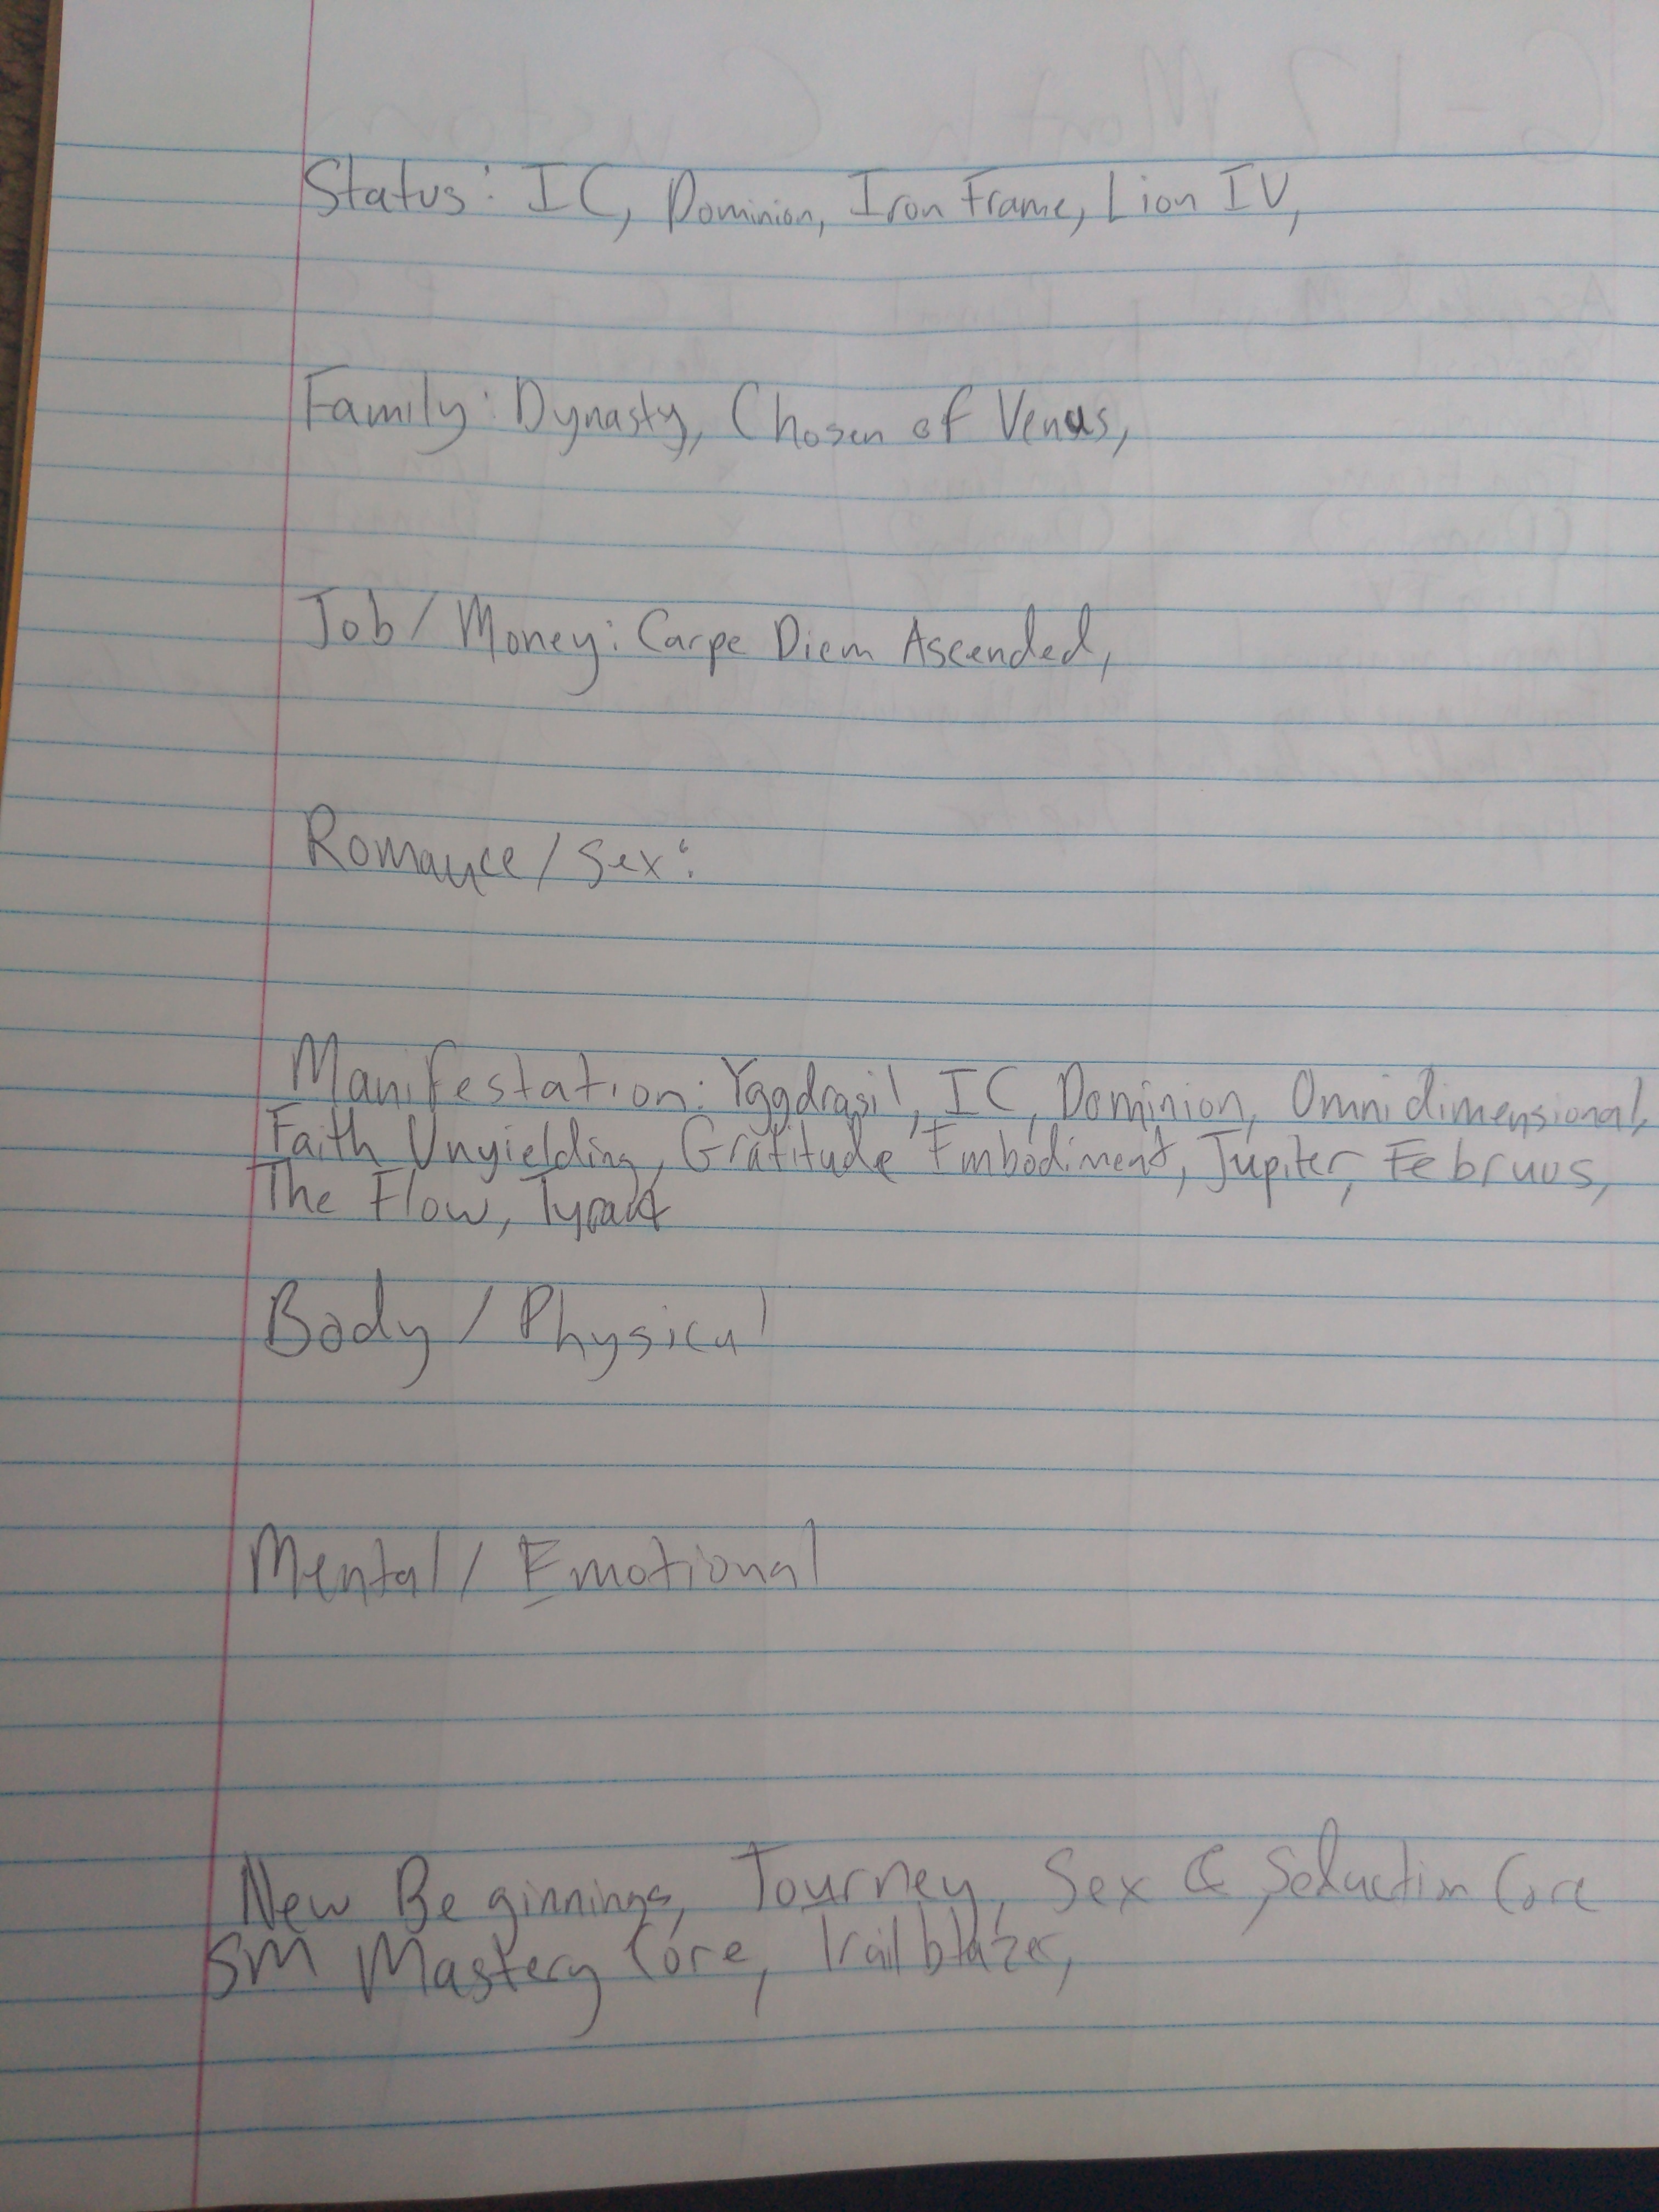 Status: IC, Dominion, Iron Frame, Lion IV,
Family: Dynasty, Chosen of Venus,
Job / Money: Carpe Diem Ascended,
Romance / Sex:
Manifestation: Yggdrasil, IC, Dominion, Omnidimensional,
Faith Unyielding, Gratitude Embodiment, Jupiter, Februus,
The Flow, Tyrant
Body / Physical
Mental / Emotional
New Beginnings, Journey, Sex & Seduction Core
SM Mastery Core, Trailblazer,